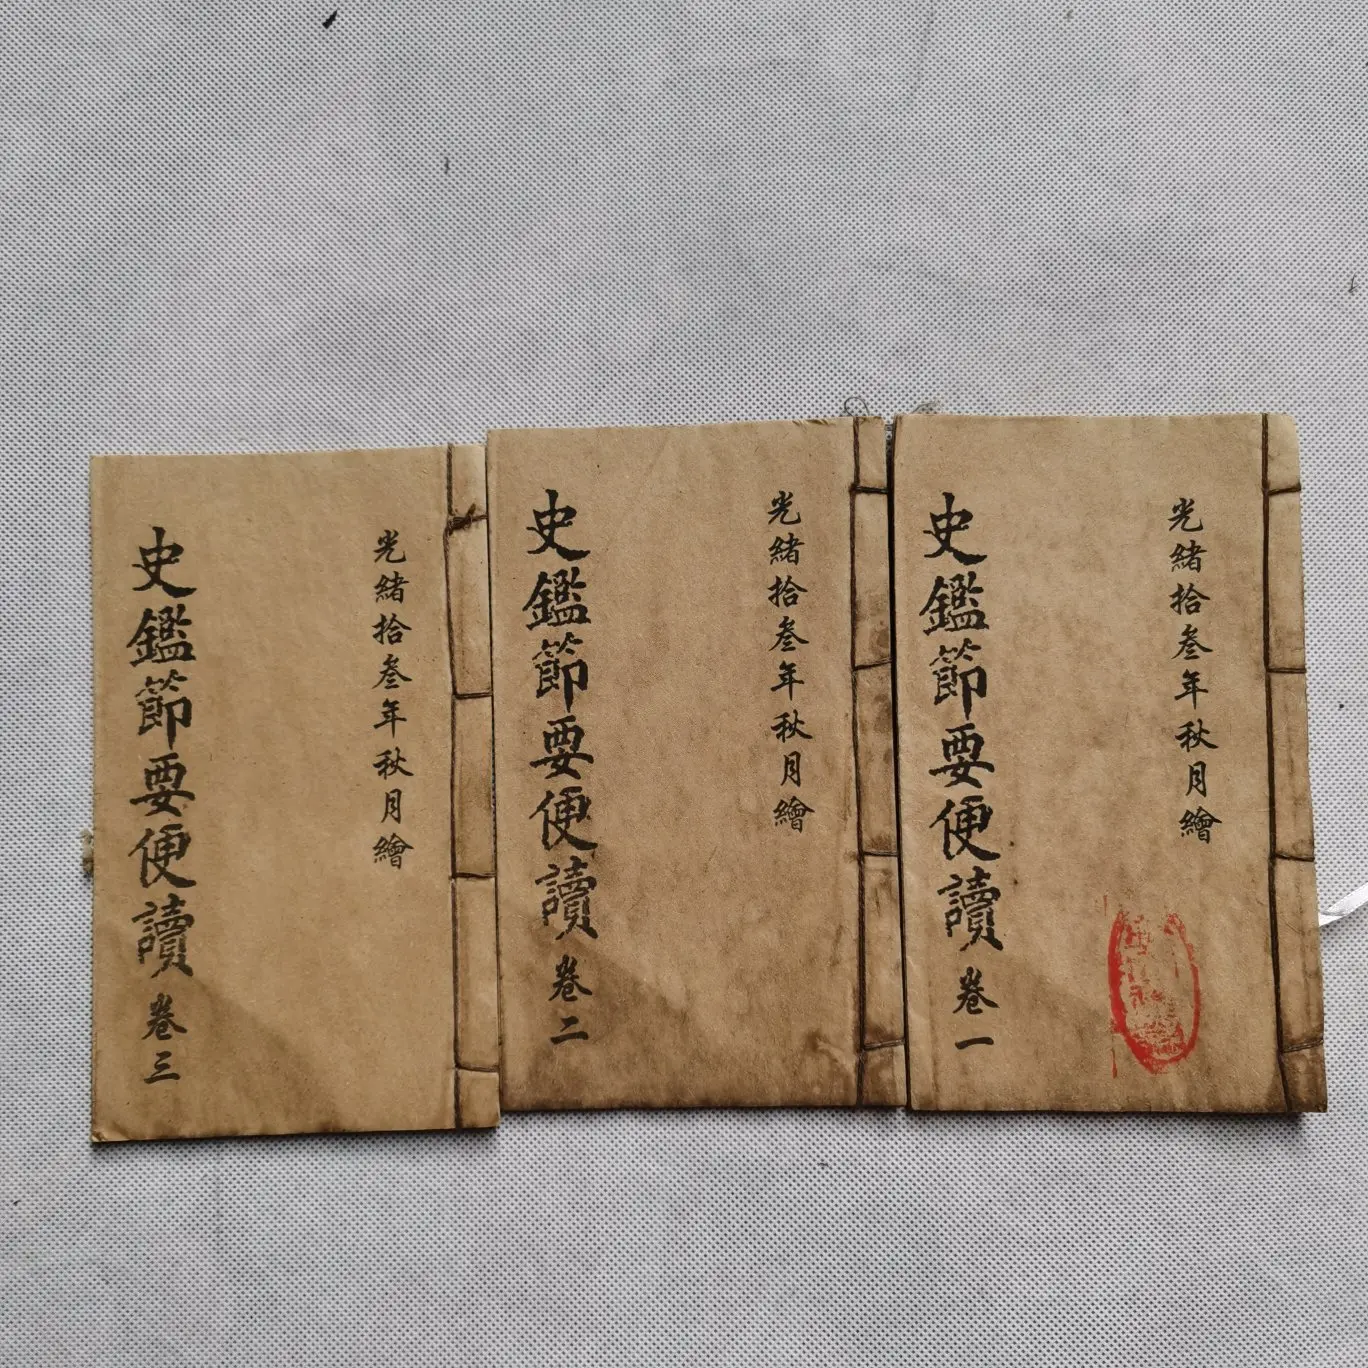 光緒拾叁年秋月繪
史鑑節要便讀卷一
光緒拾叁年秋月繪
史鑑節要便讀卷二
光緒拾叁年秋月繪
史鑑節要便讀卷三